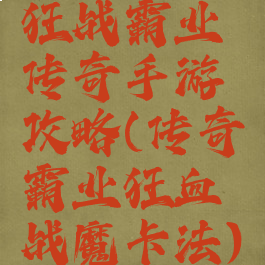 狂战霸业
传奇手游
攻略(传奇
霸业狂血
战魔卡法)